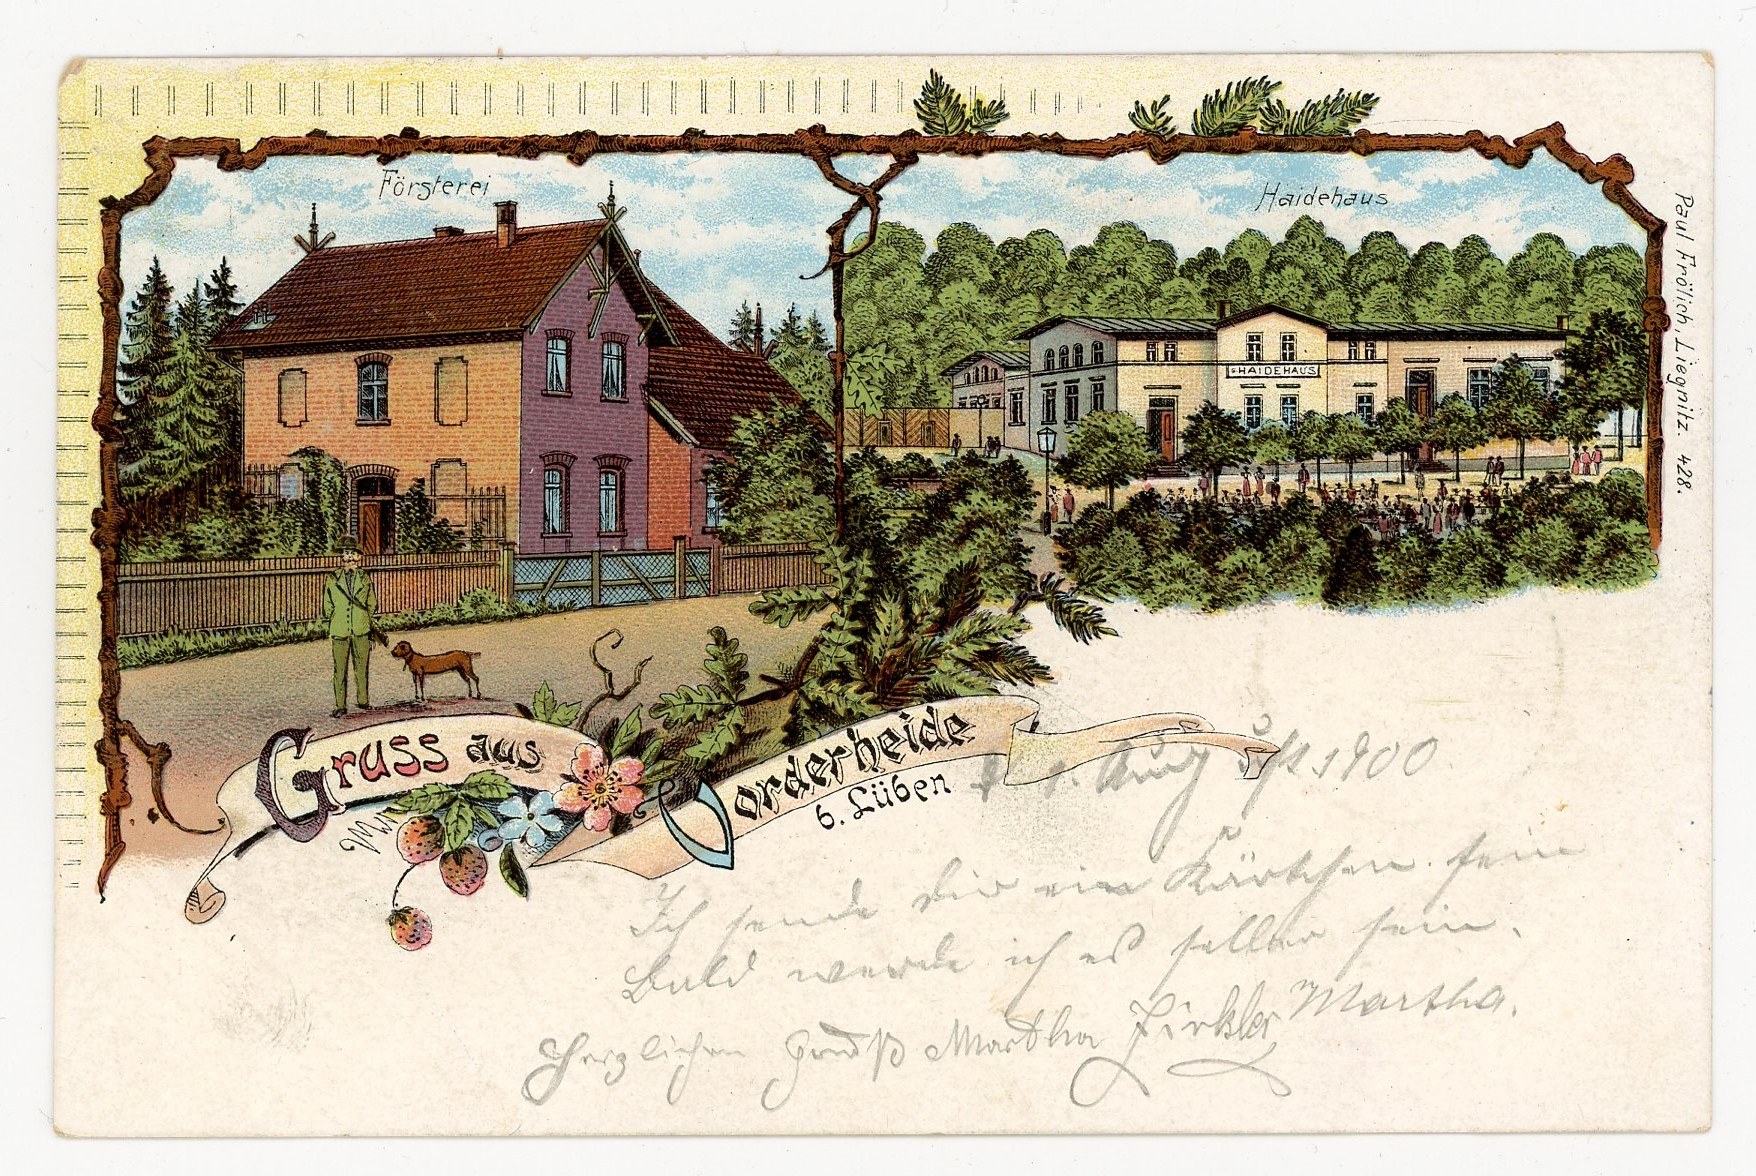 Försterei
Haidehaus
HAIDEHAUS
Paul Frölich, Liegnitz. 428.
Gruss aus
Vorderheide
b. Lüben
August 1900
Ich sende dir ein Kärtchen fein
Bald werde ich es selber sein.
Martha.
Herzlichen Gruß Martha